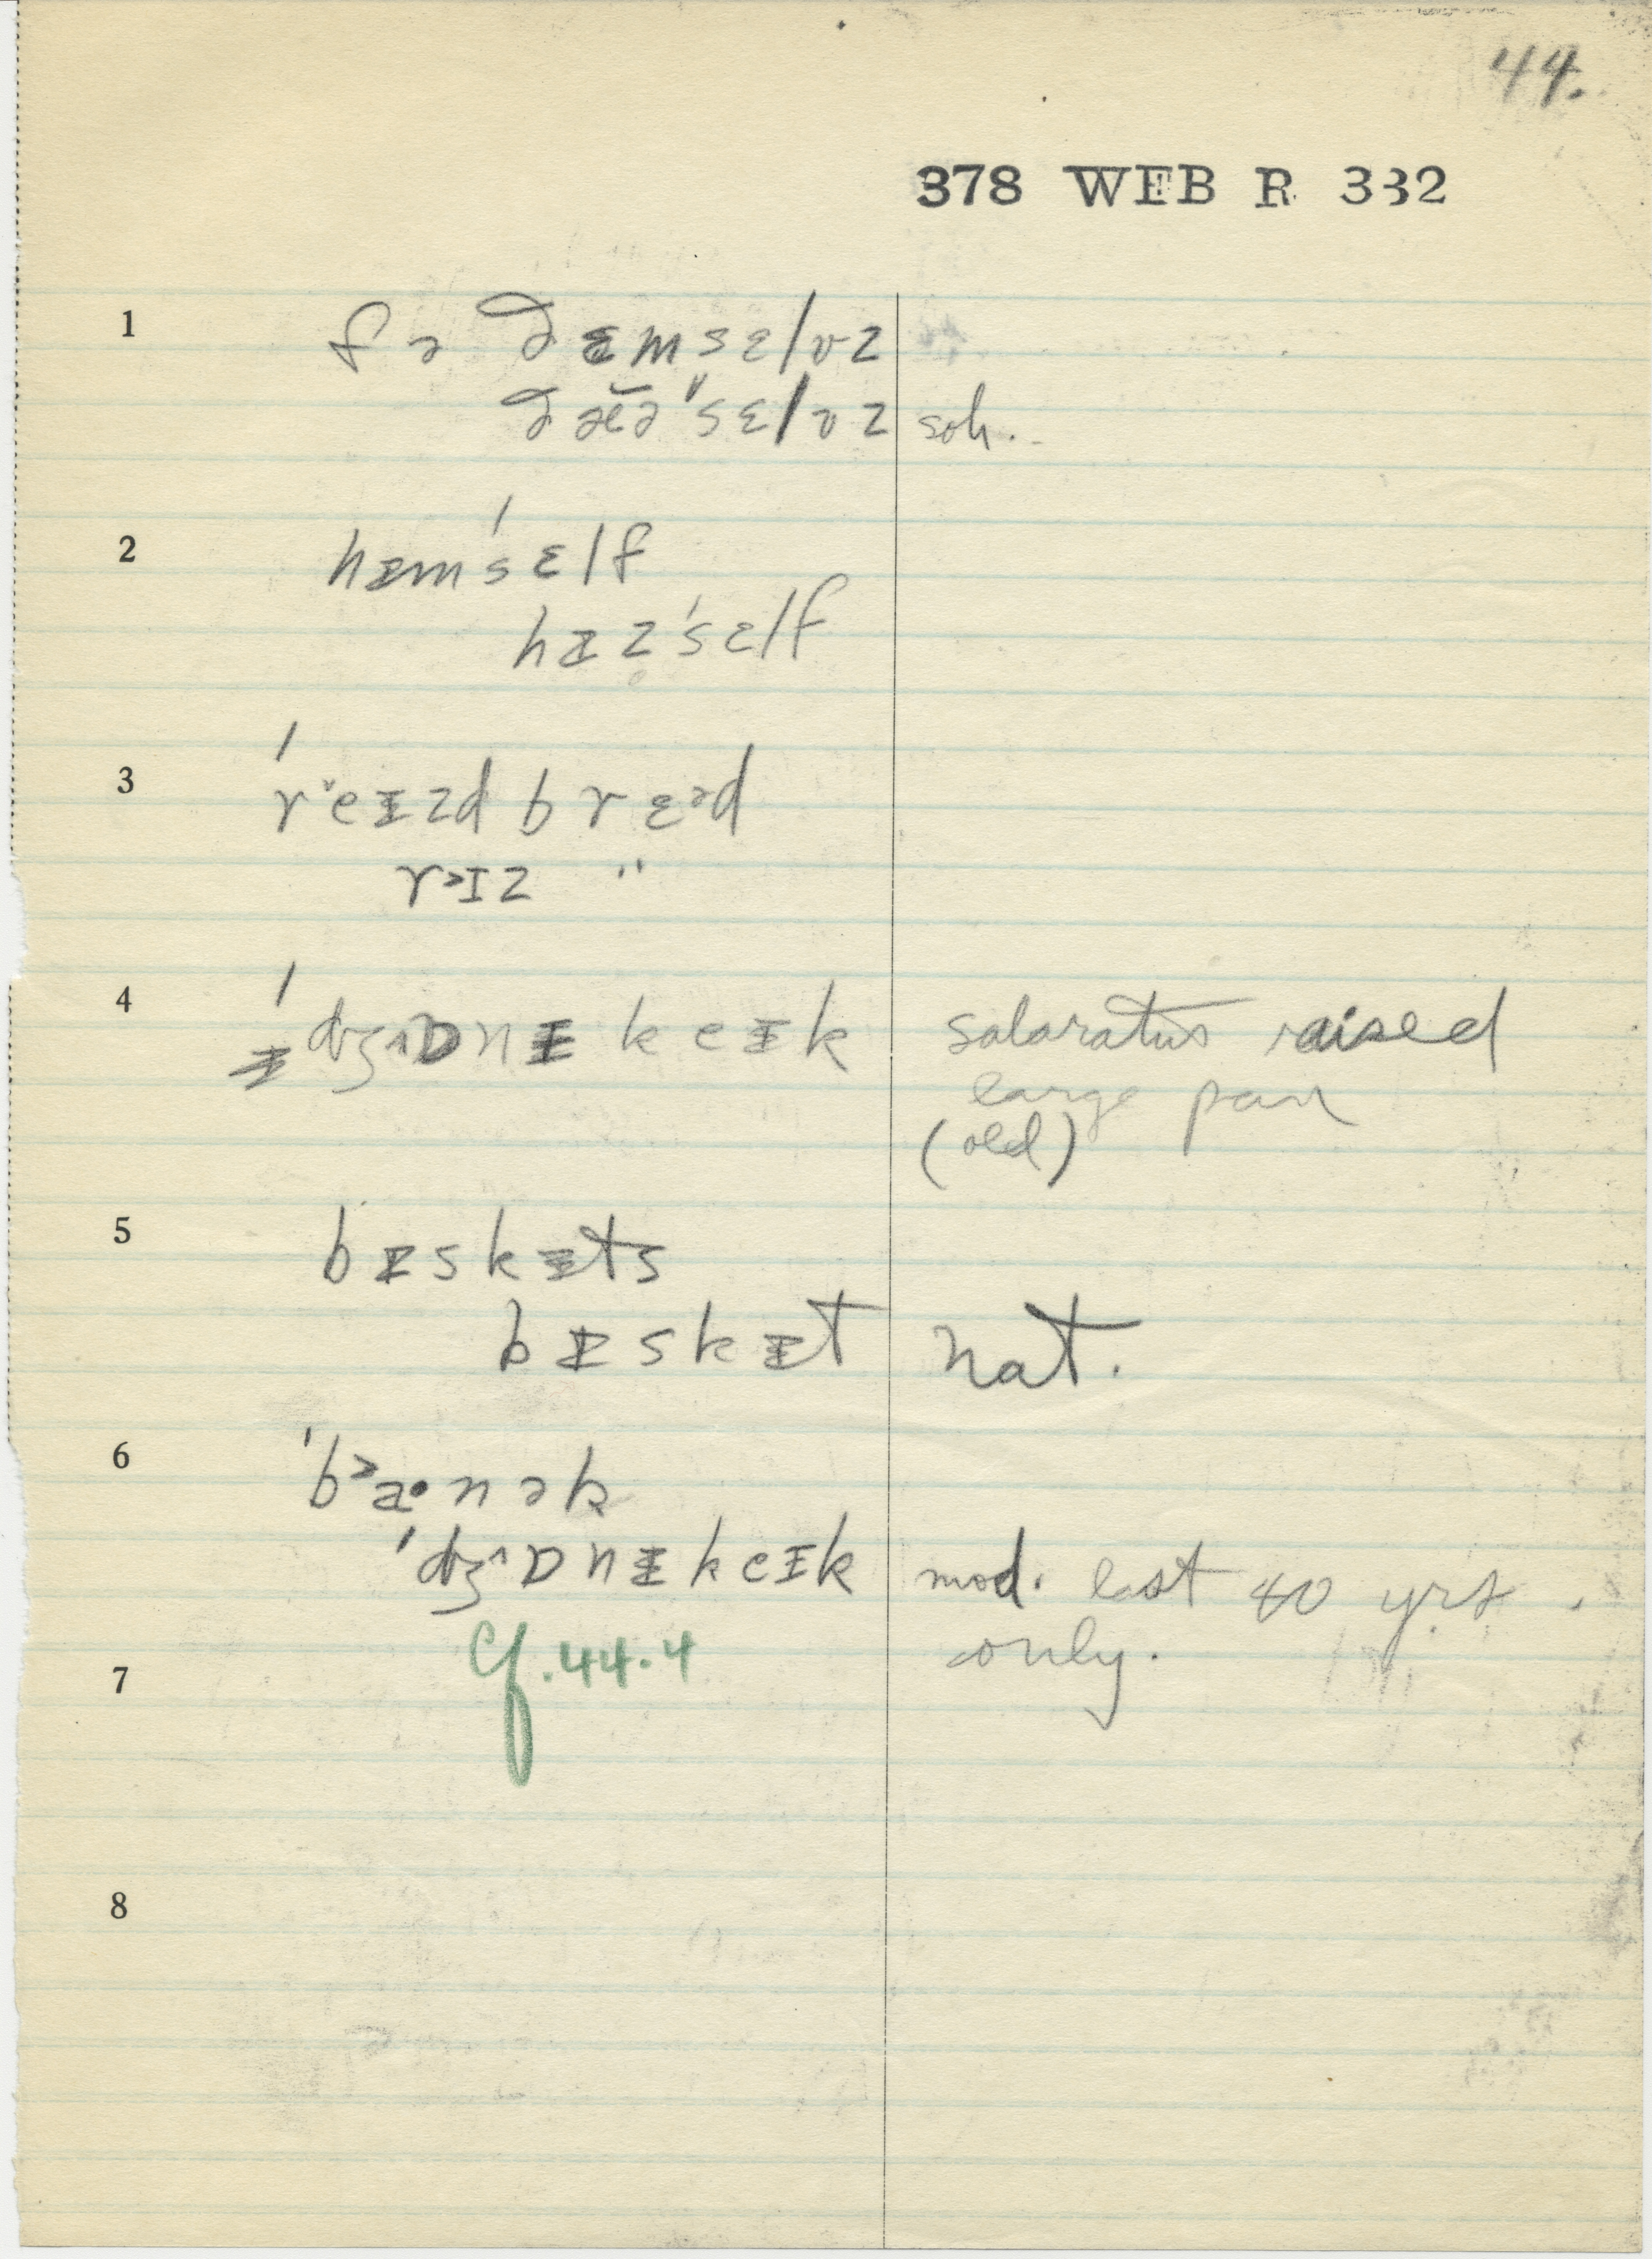 44.
378 WEB R 332
1 fə ðɛmsɛlvz
ðæ̆ə"sɛlvz soh.
2 hɪm'sɛlf
hɪz'sɛlf
3 'rˇeɪzd brɛᵊd
r>ɪz "
4 'dʒ^ɒnɪ keɪk salaratus raised
large pan
(old)
5 bɪskɪts
bɪskɪt nat.
6 'b>a·nək
'dʒ^ɒnɪ keɪk mod. last 40 yrs.
cf. 44.4 only.
7
8